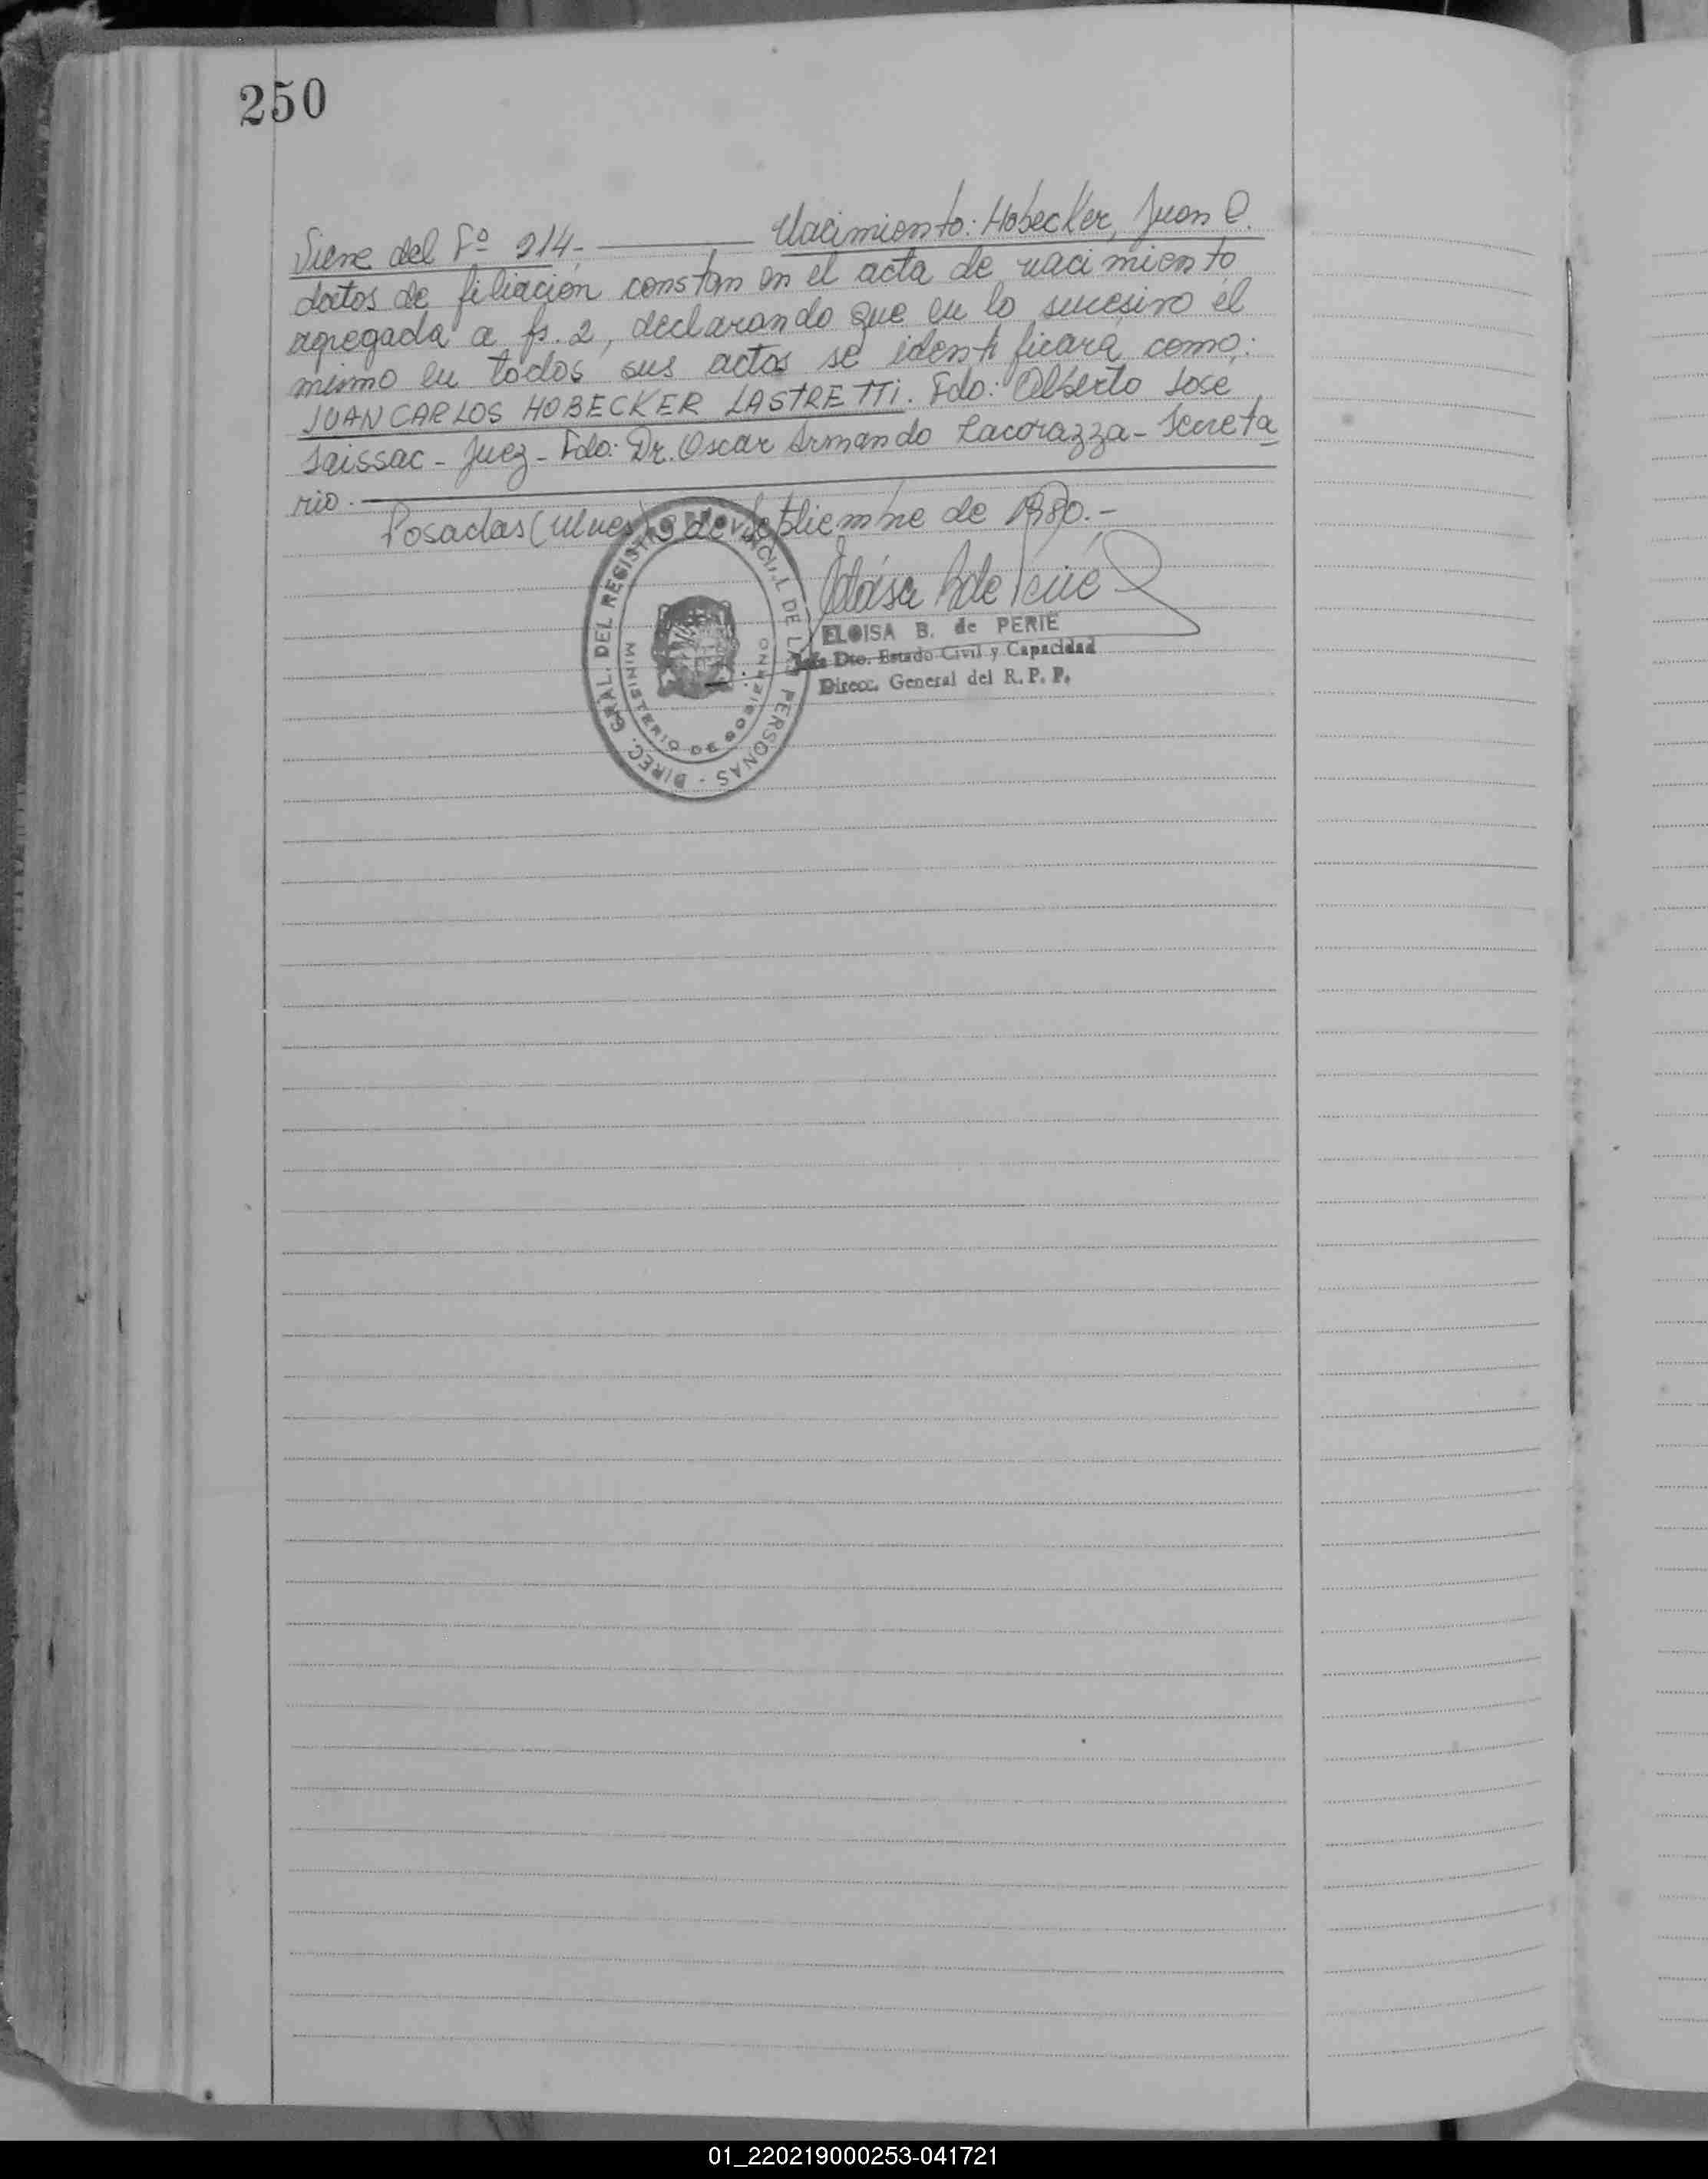 250
Viene del Fº 214.- Nacimiento: Hobecker, Juan C.
datos de filiación constan en el acta de nacimiento
agregada a fs. 2, declarando que en lo sucesivo el
mismo en todos sus actos se identificará como:
JUAN CARLOS HOBECKER LASTRETTI. Fdo: Alberto José
Saissac - Juez - Fdo: Dr. Oscar Armando Lacorazza - Secreta
rio.
Posadas (Mnes) de Septiembre de 1980.-
ELOISA B. de PERIE
Jefe Dto. Estado Civil y Capacidad
Direcc. General del R. P. P.
DIREC. GRAL. DEL REGISTRO PROVINCIAL DE LAS PERSONAS -
MINISTERIO DE GOBIERNO
01_220219000253-041721